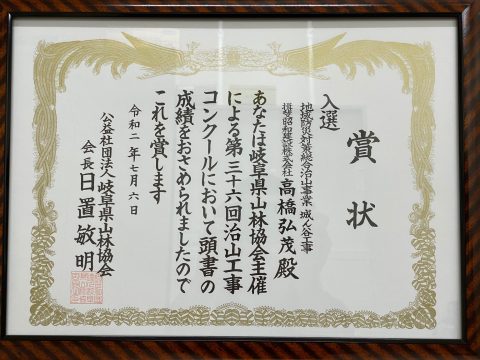 賞状
入選
地域防災対策総合治山事業 城ヶ谷工事
揖斐昭和建設株式会社
高橋弘茂殿
あなたは岐阜県山林協会主催
による第三十六回治山工事
コンクールにおいて頭書の
成績をおさめられましたので
これを賞します
令和二年七月六日
公益社団法人岐阜県山林協会
会長 日置敏明